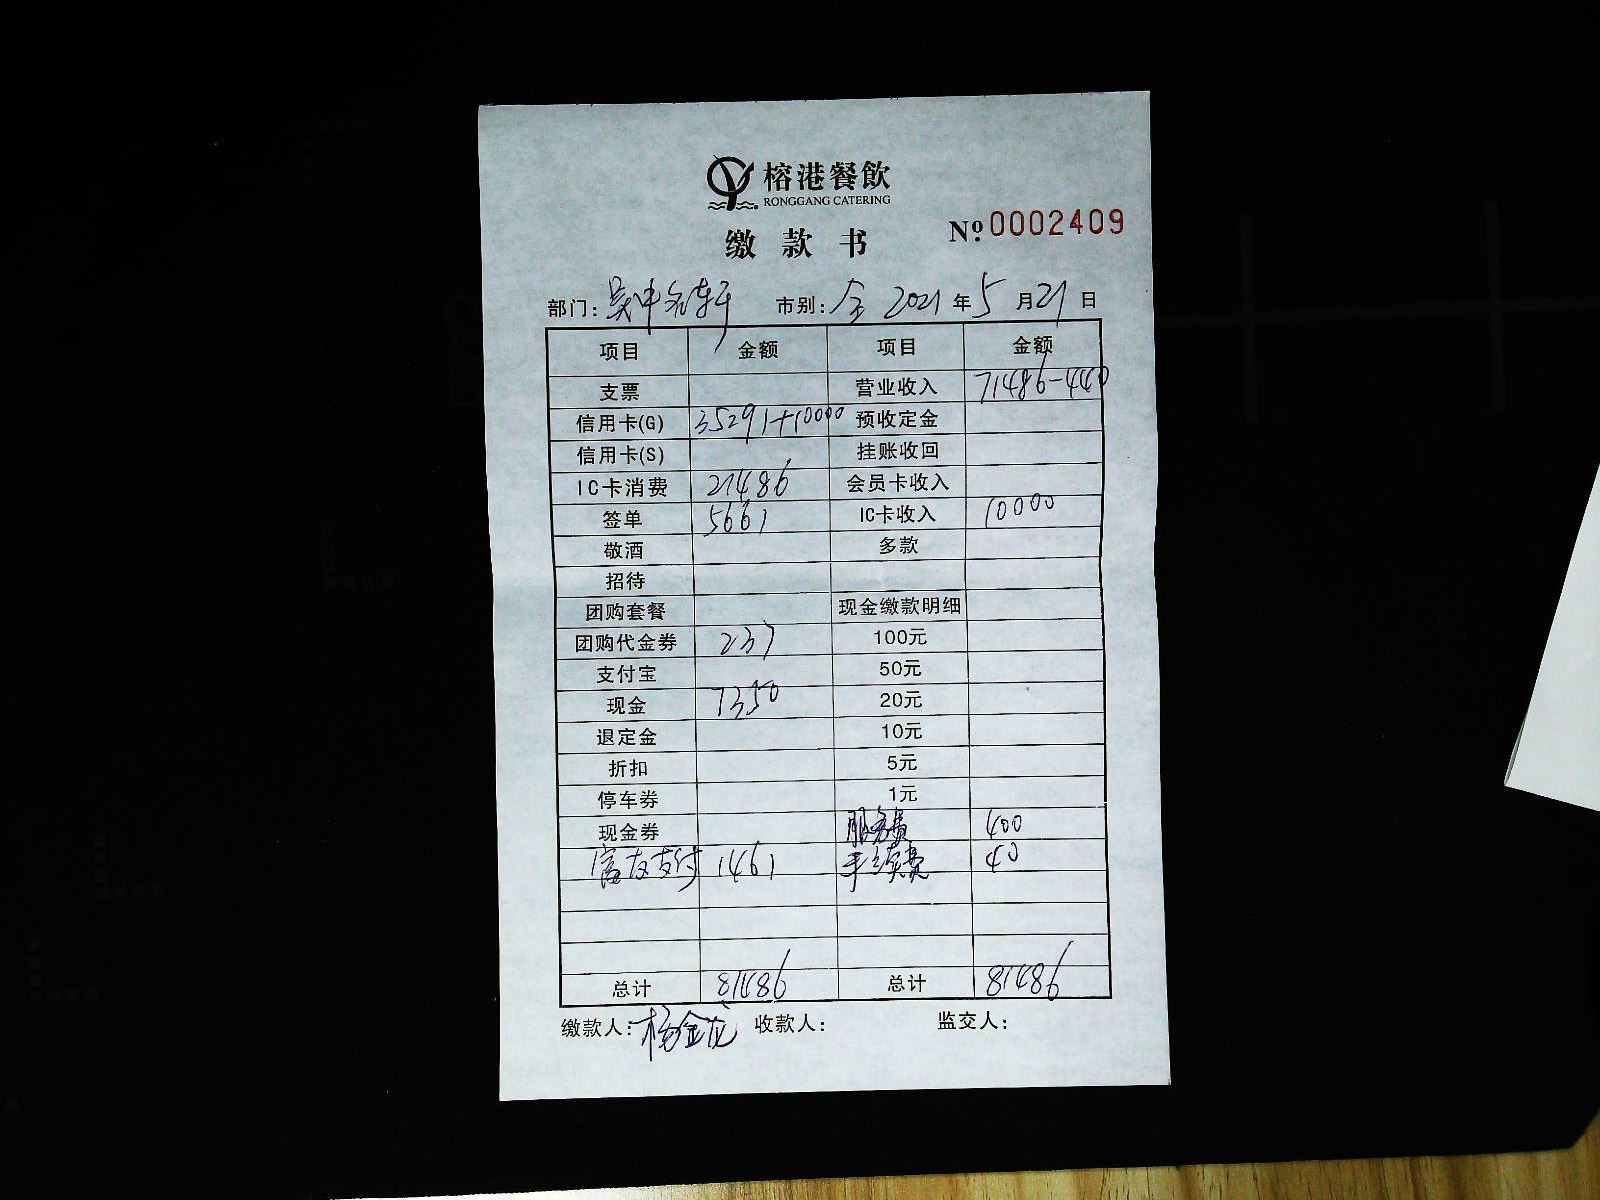 榕港餐飲
RONGGANG CATERING
缴款书
Nº 0002409
部门: 吴中 市别: 全 2021年5月21日
项目 金额 项目 金额
支票 营业收入 71486-440
信用卡(G) 35291+10000 预收定金
信用卡(S) 挂账收回
IC卡消费 21486 会员卡收入
签单 5661 IC卡收入 10000
敬酒 多款
招待
团购套餐 现金缴款明细
团购代金券 237 100元
支付宝 50元
现金 7350 20元
退定金 10元
折扣 5元
停车券 1元
现金券 服务费 400
富友支付 1461 手续费 40
总计 81486 总计 81486
缴款人: 杨金龙 收款人: 监交人: